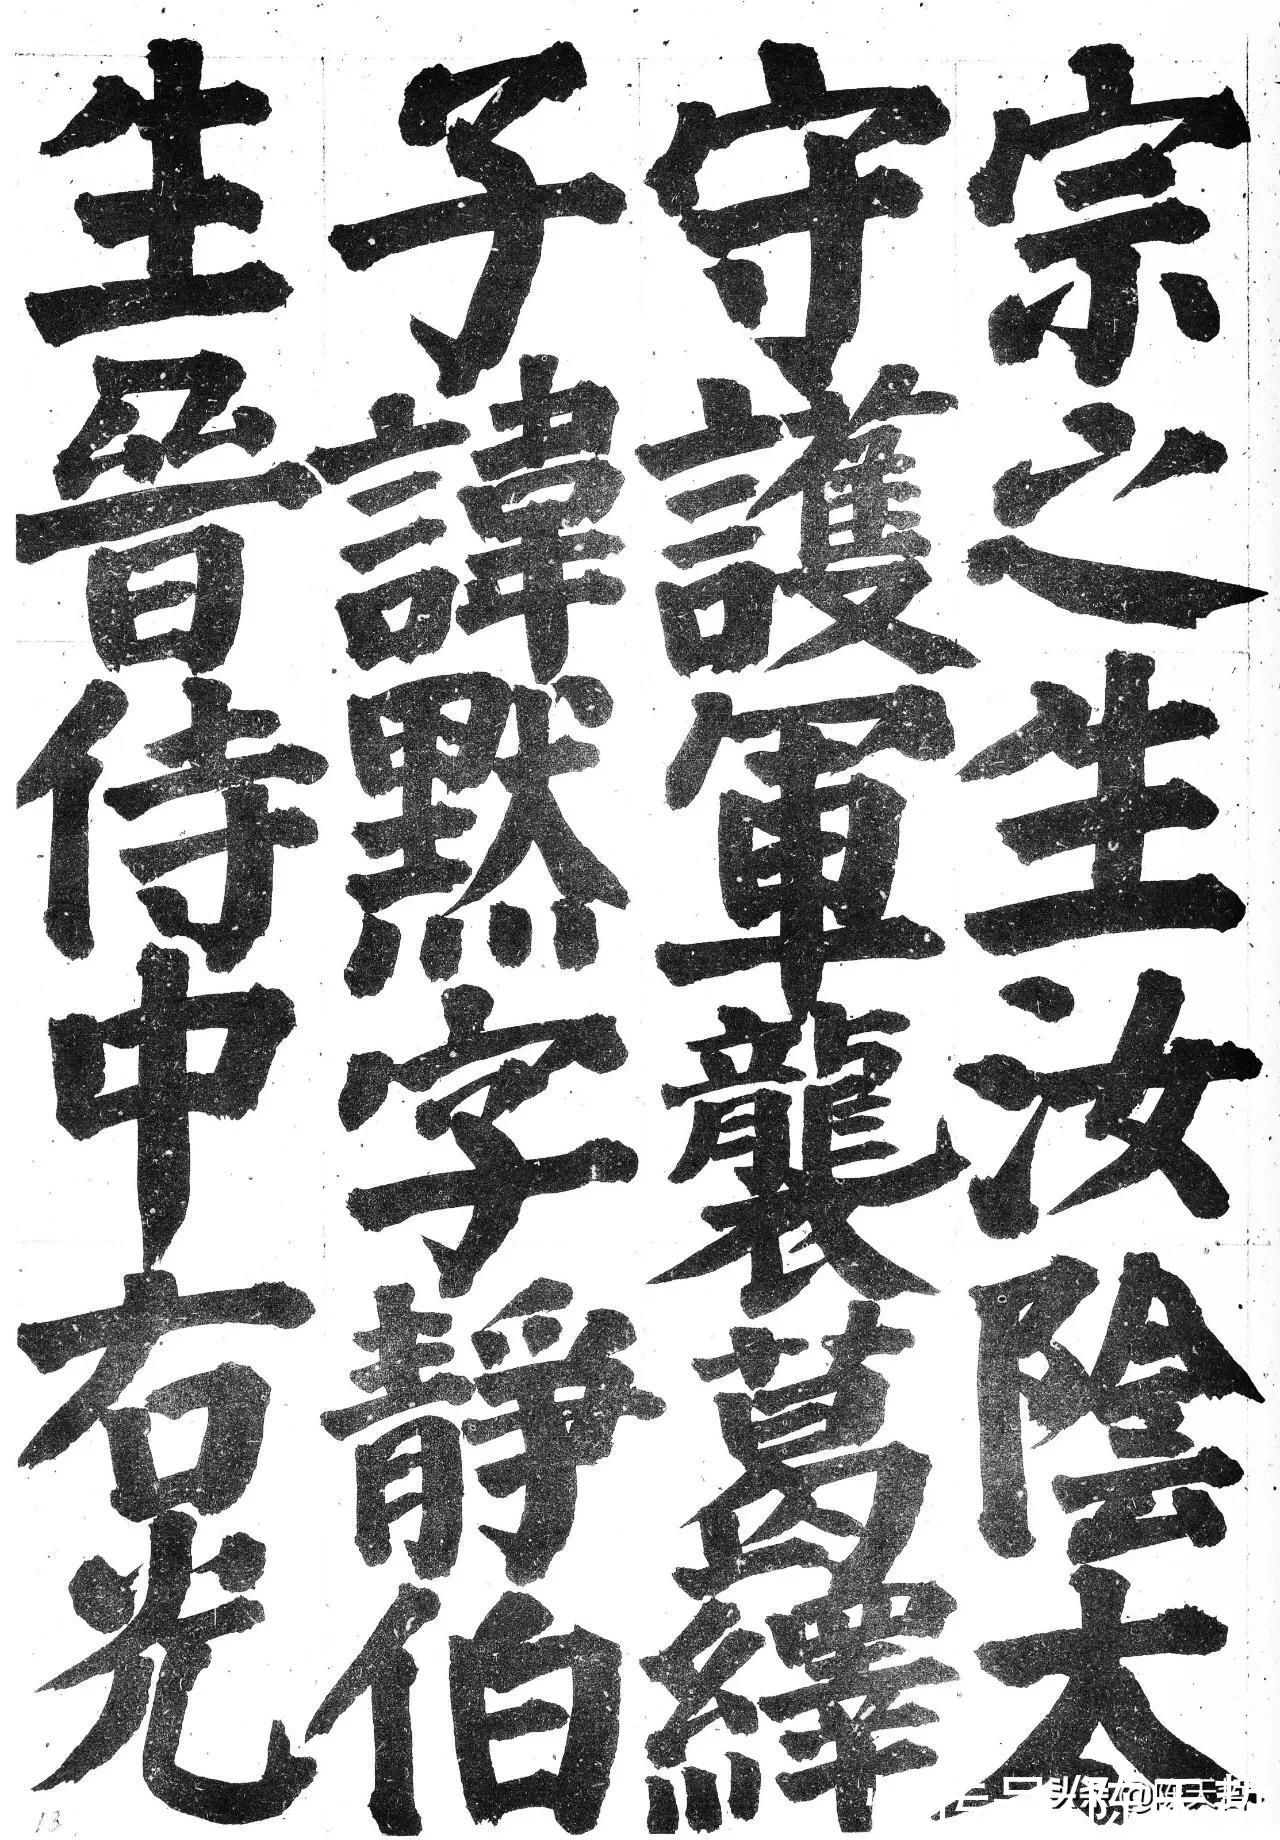 宗之生汝陰太
守護軍襲葛繹
子諱黙字靜伯
生晉侍中右光
13